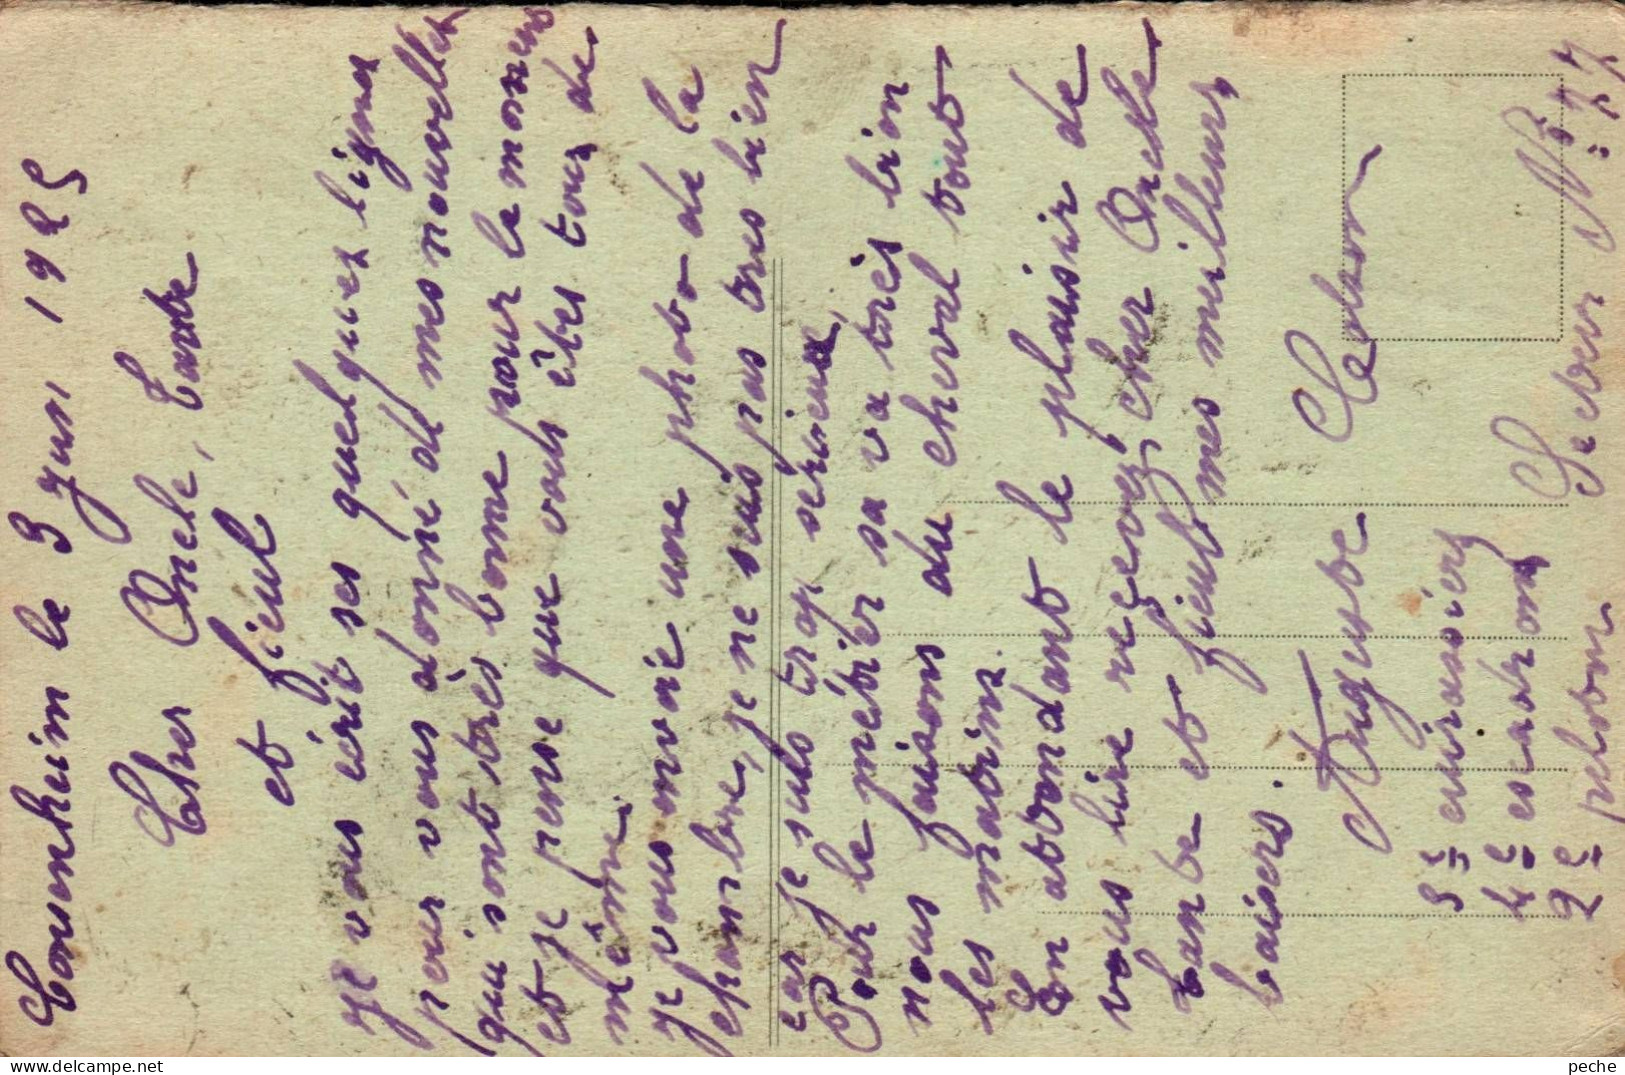 Cosenheim le 3 juin 1925
Cher Oncle, Tante
et fieul
Je vous écrit ses quelques lignes
pour vous àdonné de mes nouvelles
qui sont très bonne pour le moment
et je pense que vous êtes tous de
même.
Je vous envoie une photo de la
chambre, je ne suis pas tres bien
car je suis trop sérieux,
Pour le métier sa va très bien
nous faisons du cheval tout
les matins.
En abondant le plaisir de
vous lire reçevez, cher Oncle
Tante et fieul mes meilleurs
baisers.
Auguste Colson
3e cuirassiers
4e escadron
2e peloton
Secteur N° 77
peche